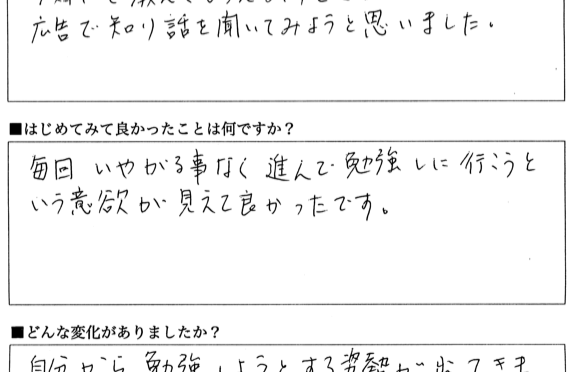 広告で知り話を聞いてみようと思いました。
■はじめてみて良かったことは何ですか？
毎回 いやがる事なく進んで勉強しに行こうと
いう意欲が見えて良かったです。
■どんな変化がありましたか？
自分から勉強しようとする姿勢が出てきま